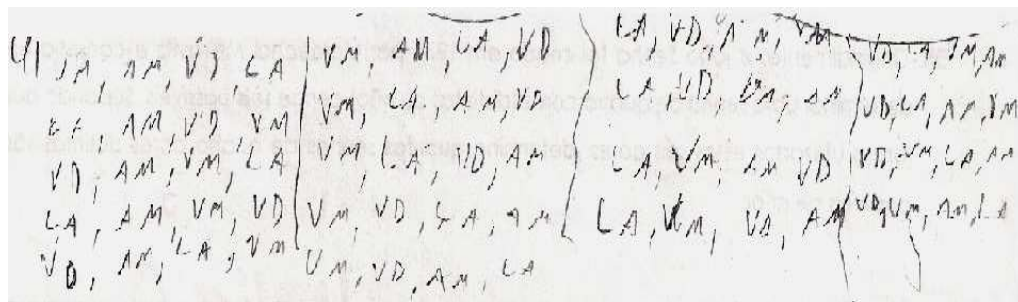 4) VM AM VD LA
LA, AM, VD, VM
VD, AM, VM, LA
LA, AM, VM, VD
VD, AM, LA, VM
VM, AM, LA, VD
VM, LA, AM, VD
VM, LA, VD, AM
VM, VD, LA, AM
VM, VD, AM, LA
LA, VD, AM, VM
LA VD VM, AM
LA, VM, AM VD
LA, VM, VD, AM
VD, LA, VM, AM
VD, LA, AM, VM
VD, VM, LA, AM
VD, VM, AM, LA